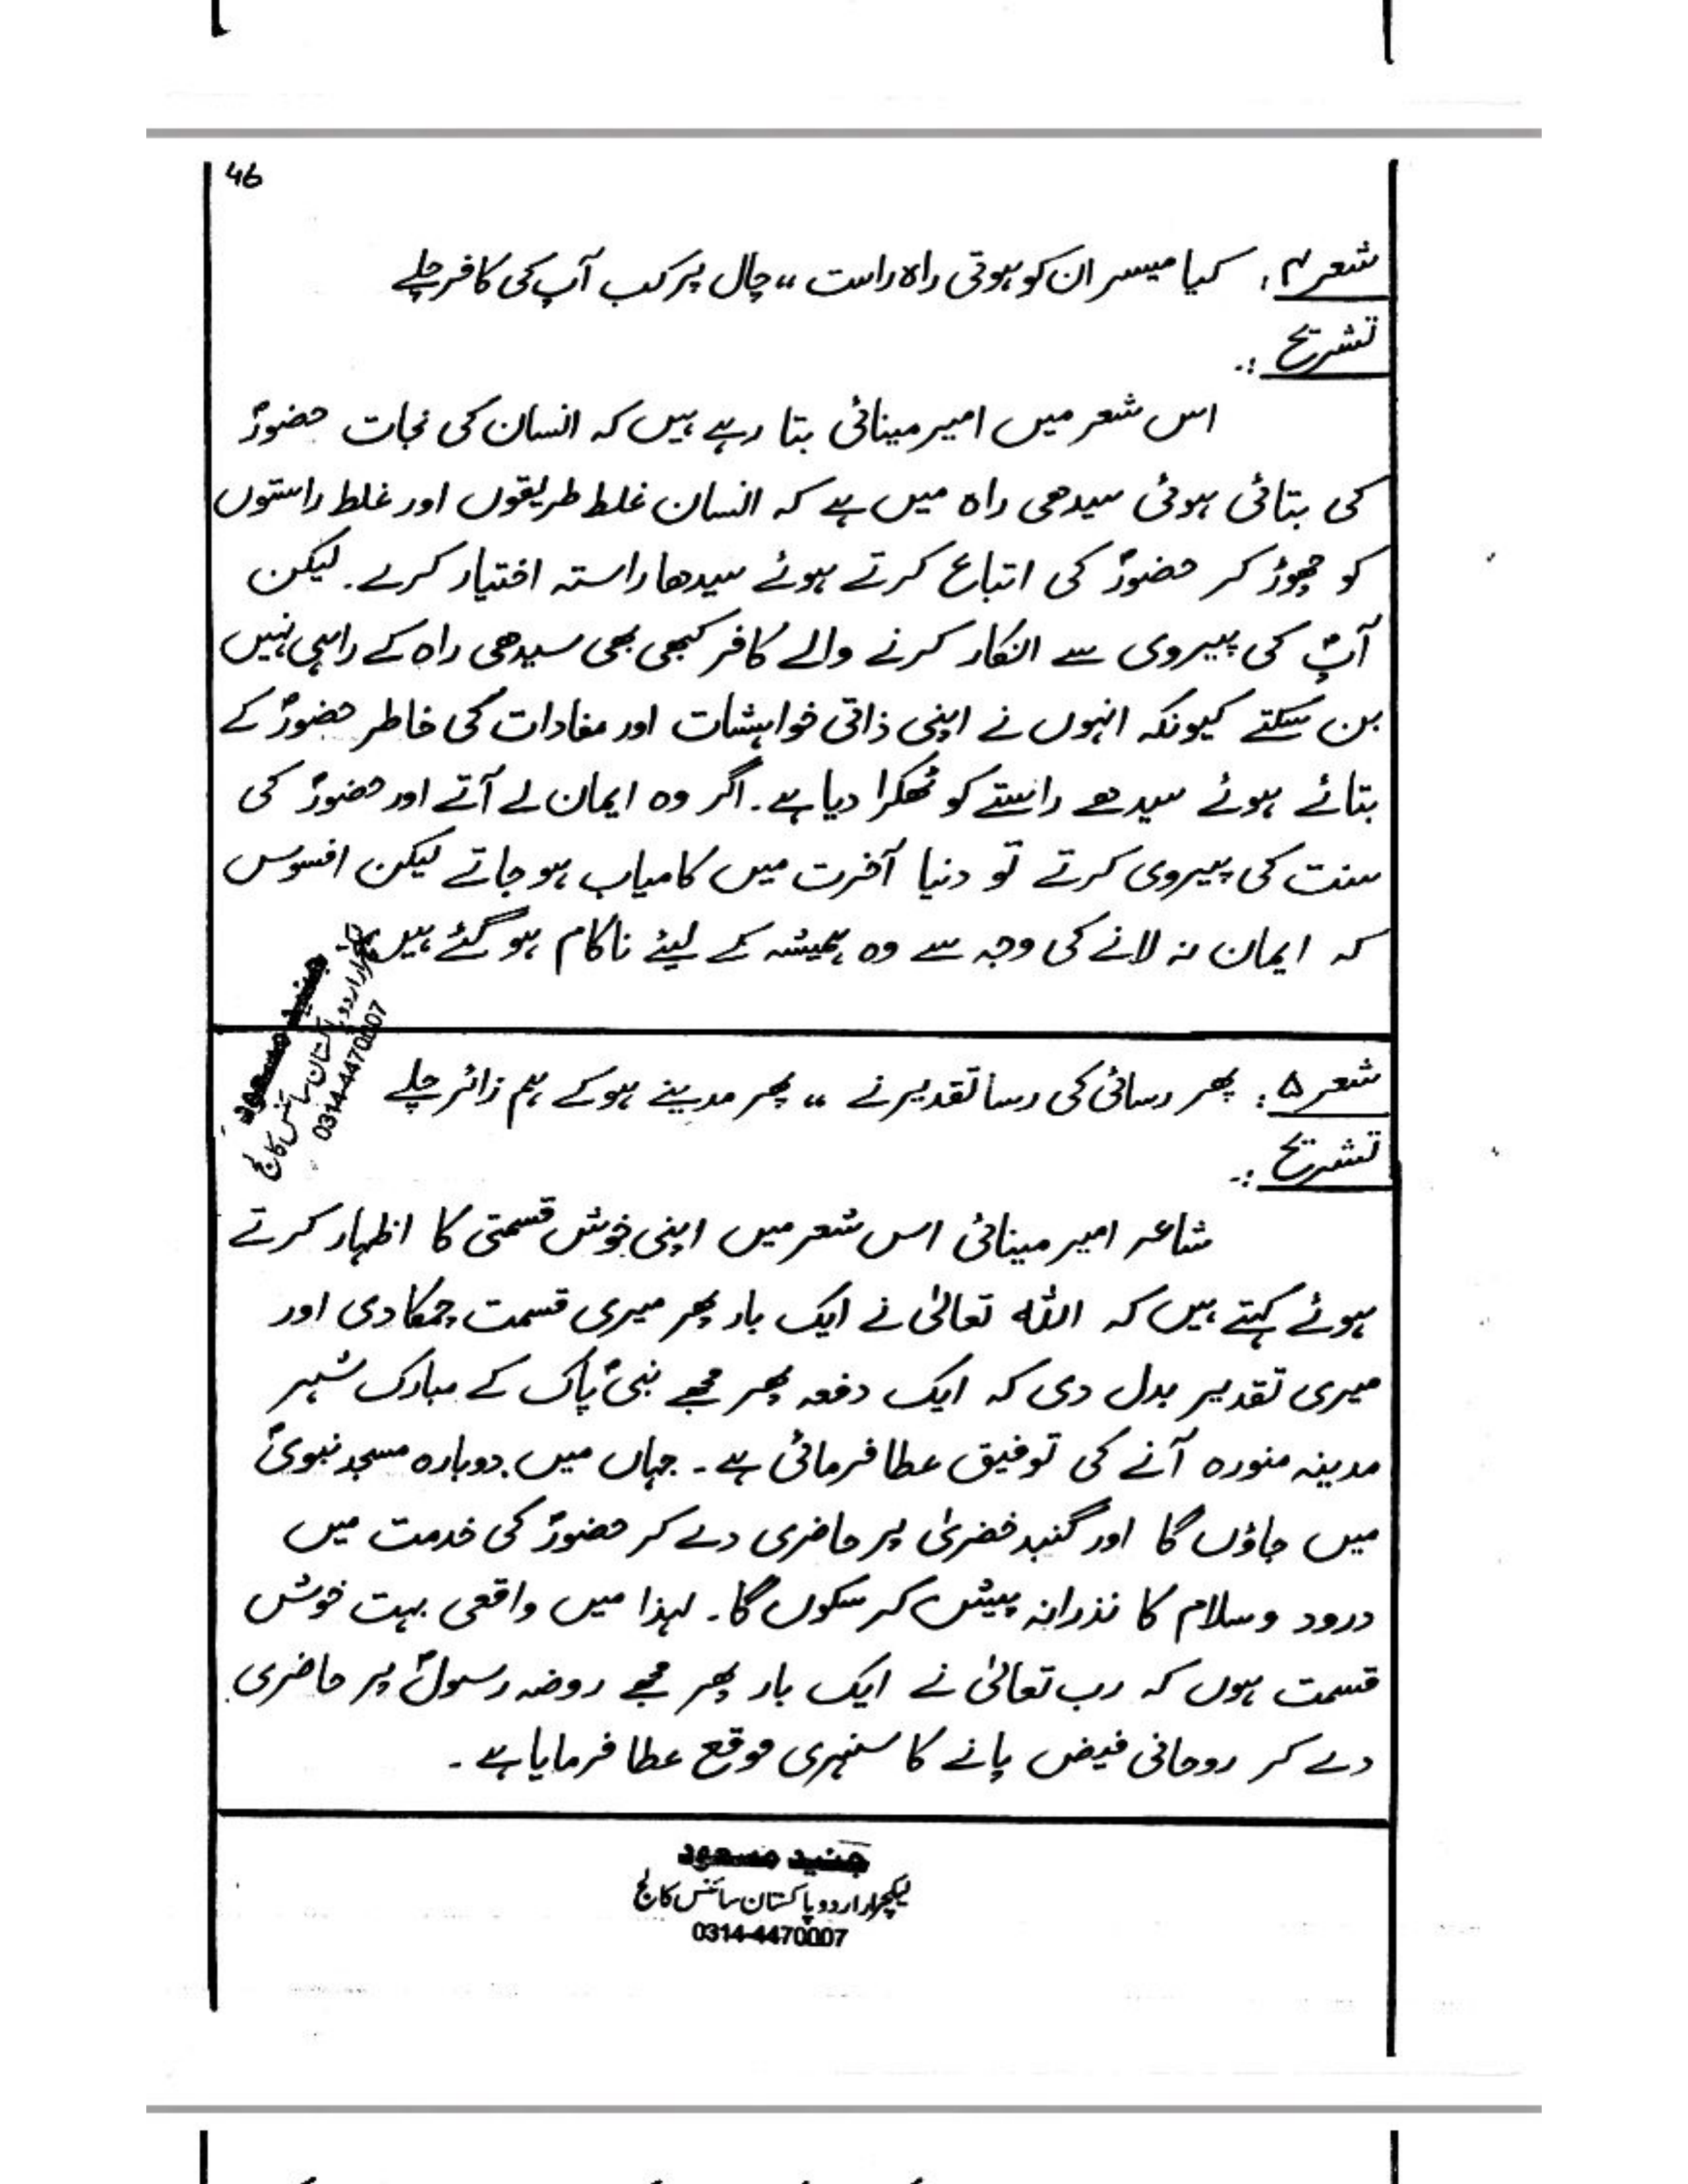 46
شعر ۴: کیا میسر ان کو ہوتی راہ راست ،، چال پر کب آپ کی کافر چلے
تشریح :-
اس شعر میں امیر مینائی بتا رہے ہیں کہ انسان کی نجات حضورؐ
کی بتائی ہوئی سیدھی راہ میں ہے کہ انسان غلط طریقوں اور غلط راستوں
کو چھوڑ کر حضورؐ کی اتباع کرتے ہوئے سیدھا راستہ اختیار کرے۔ لیکن
آپؐ کی پیروی سے انکار کرنے والے کافر کبھی بھی سیدھی راہ کے راہی نہیں
بن سکتے کیونکہ انہوں نے اپنی ذاتی خواہشات اور مفادات کی خاطر حضورؐ کے
بتائے ہوئے سیدھے راستے کو ٹھکرا دیا ہے۔ اگر وہ ایمان لے آتے اور حضورؐ کی
سنت کی پیروی کرتے تو دنیا آخرت میں کامیاب ہو جاتے لیکن افسوس
کہ ایمان نہ لانے کی وجہ سے وہ ہمیشہ کے لیئے ناکام ہو گئے ہیں
جنید مسعود
لیکچرار اردو پاکستان سائنس کالج
0314-4470007
شعر ۵: پھر رسائی کی رسا تقدیر نے ،، پھر مدینے ہو کے ہم زائر چلے
تشریح :-
شاعر امیر مینائی اس شعر میں اپنی خوش قسمتی کا اظہار کرتے
ہوئے کہتے ہیں کہ اللہ تعالیٰ نے ایک بار پھر میری قسمت چمکا دی اور
میری تقدیر بدل دی کہ ایک دفعہ پھر مجھے نبیؐ پاک کے مبارک شہر
مدینہ منورہ آنے کی توفیق عطا فرمائی ہے۔ جہاں میں دوبارہ مسجد نبویؐ
میں جاؤں گا اور گنبد خضریٰ پر حاضری دے کر حضورؐ کی خدمت میں
درود و سلام کا نذرانہ پیش کر سکوں گا۔ لہذا میں واقعی بہت خوش
قسمت ہوں کہ رب تعالیٰ نے ایک بار پھر مجھے روضہ رسولؐ پر حاضری
دے کر روحانی فیض پانے کا سنہری موقع عطا فرمایا ہے۔
جنید مسعود
لیکچرار اردو پاکستان سائنس کالج
0314-4470007